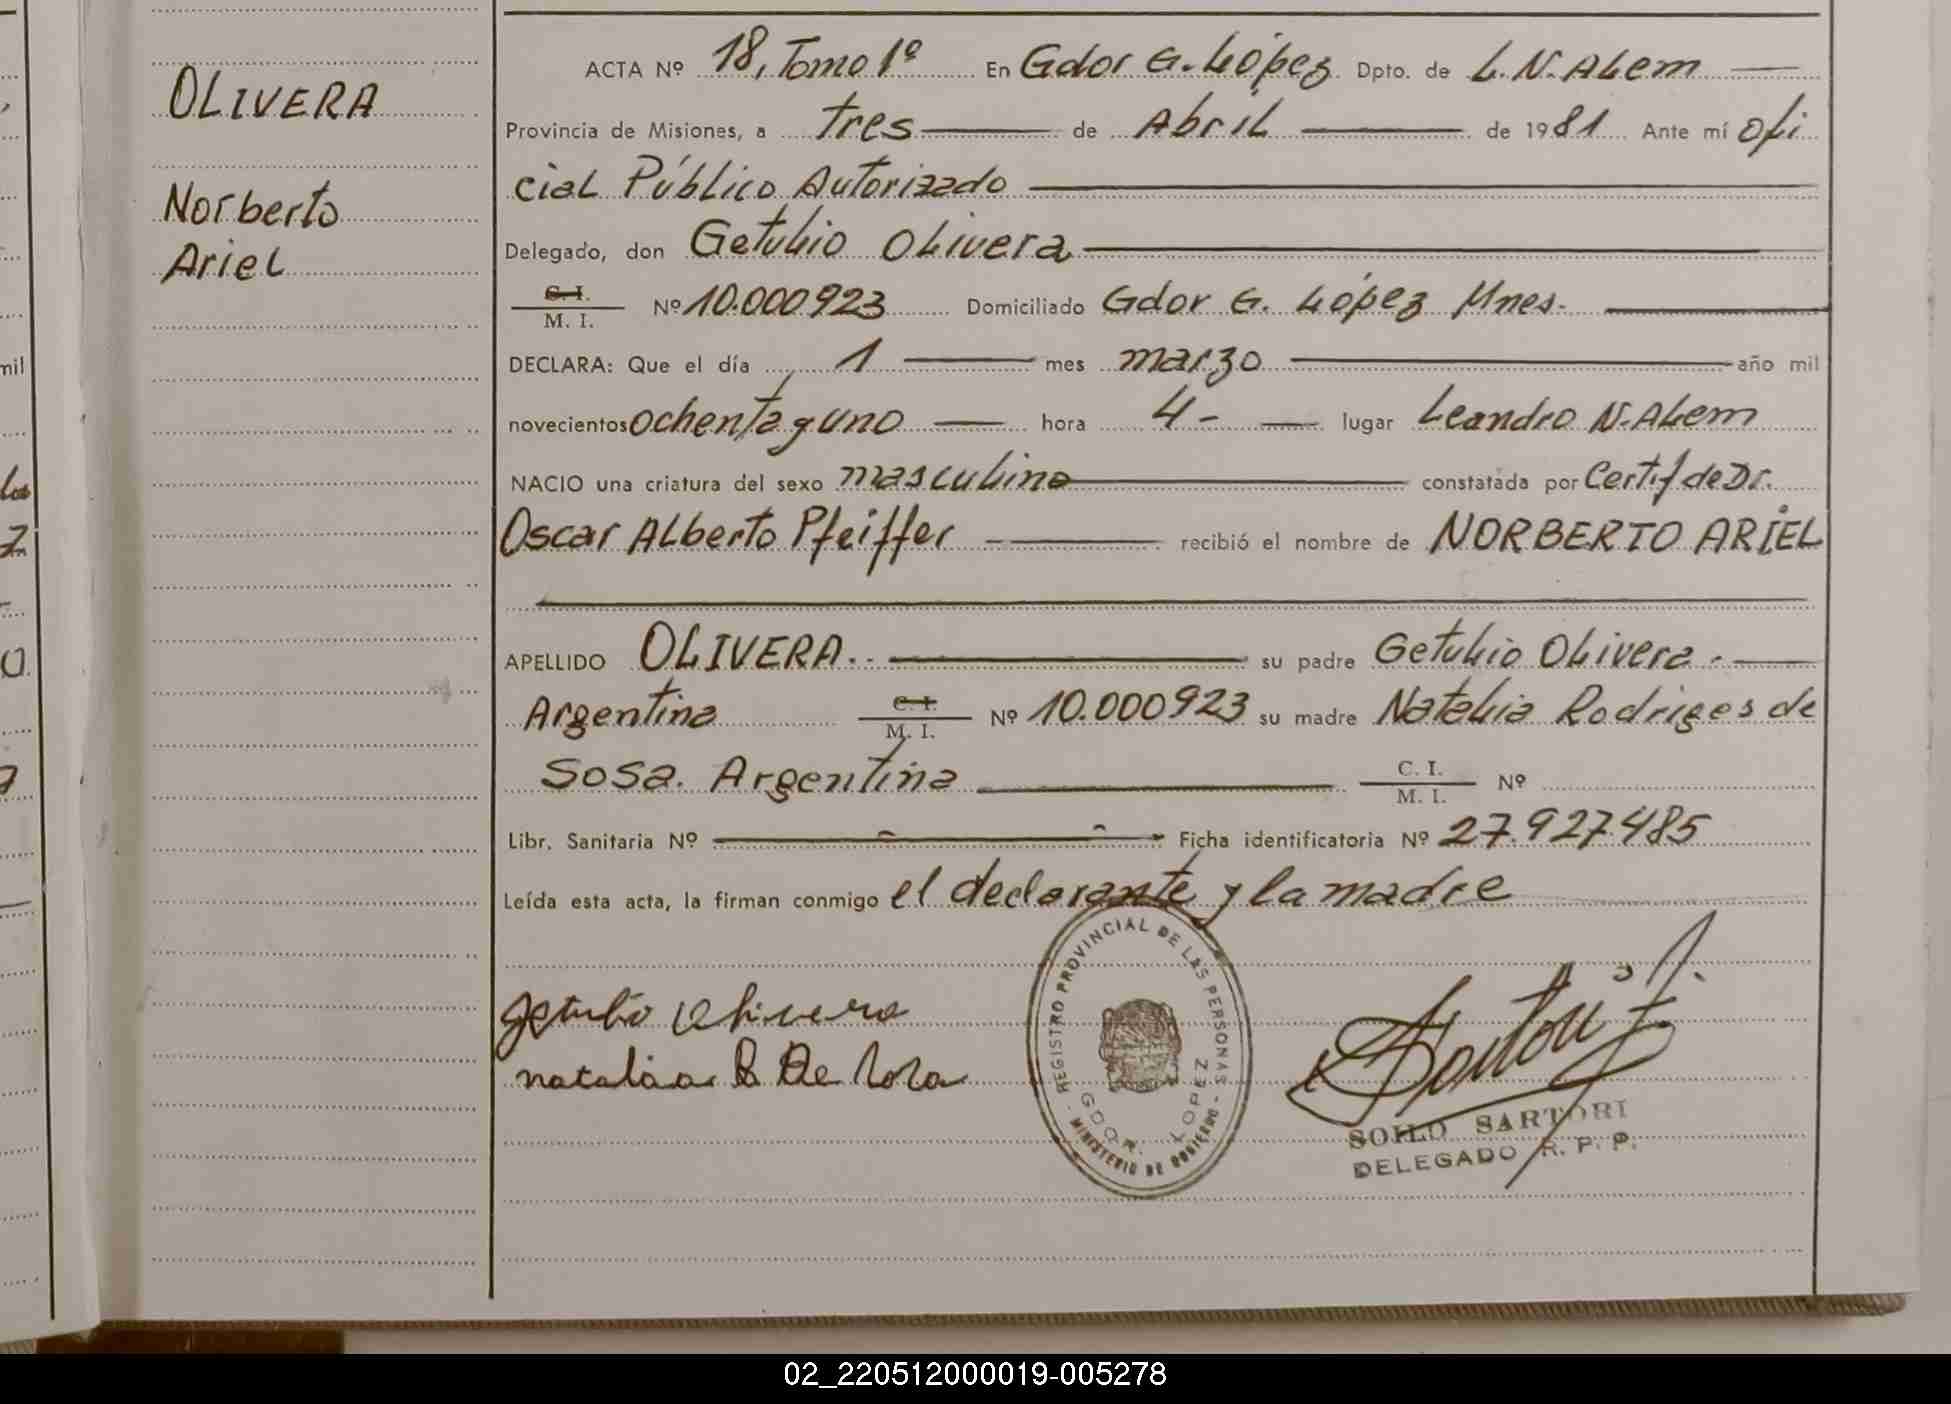 OLIVERA
Norberto
Ariel
ACTA Nº 18, Tomo 1º En Gdor G. López Dpto. de L. N. ALem
Provincia de Misiones, a tres de Abril de 1981 Ante mí ofi
cial Público Autorizado
Delegado, don Getulio Olivera
C. I.
M. I. Nº 10.000923 Domiciliado Gdor G. López Mnes.
DECLARA: Que el día 1 mes marzo año mil
novecientos ochenta y uno hora 4 - lugar Leandro N. ALem
NACIO una criatura del sexo masculino constatada por Certif de Dr.
Oscar Alberto Pfeiffer recibió el nombre de NORBERTO ARIEL
APELLIDO OLIVERA. su padre Getulio Olivera.
Argentina C. I.
M. I. Nº 10.000923 su madre Natalia Rodriges de
Sosa. Argentina C. I.
M. I. Nº
Libr. Sanitaria Nº Ficha identificatoria Nº 27.927.485
Leída esta acta, la firman conmigo el declarante y la madre
getulio Olivera
natalia R De Sosa
REGISTRO PROVINCIAL DE LAS PERSONAS
GDOR. LOPEZ
MINISTERIO DE GOBIERNO
SOILO SARTORI
DELEGADO R. P. P.
02_220512000019-005278